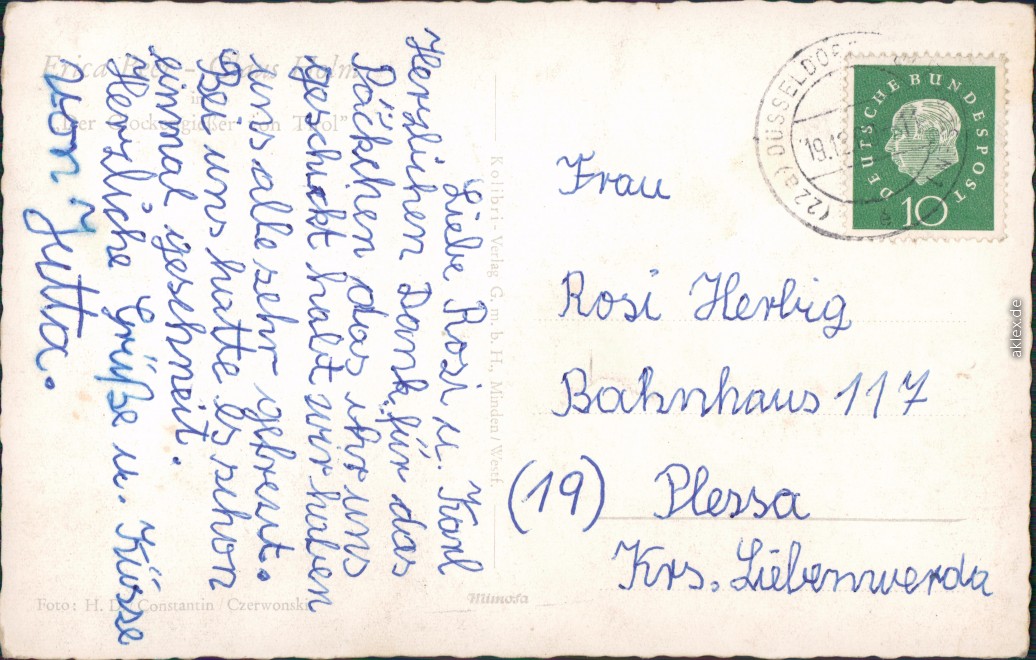 Liebe Rosi u. Karl
Herzlichen Dank für das
Päckchen das ihr uns
geschickt habt wir haben
uns alle sehr gefreut.
Bei uns hatte es schon
einmal geschneit.
Herzliche Grüße u. Küsse
von Jutta.
Erica - Claus Holm
in
„Der Glockengießer von Tirol"
Foto: H. D. Constantin Czerwonski
Kolibri-Verlag G.m.b.H., Minden/Westf.
Mimosa
(22a) DÜSSELDORF
19.12.
e
DEUTSCHE BUNDESPOST
10
Frau
Rosi Herbig
Bahnhaus 117
(19) Plessa
Krs. Liebenwerda
aklex.de